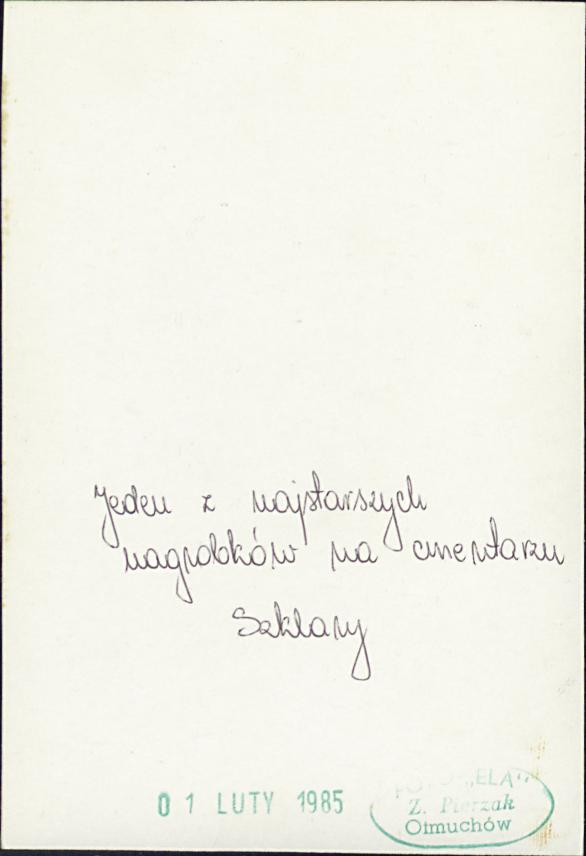 Jeden z najstarszych
nagrobków na cmentarzu
Szklary
01 LUTY 1985
FOTO „ELA”
Z. Pierzak
Otmuchów